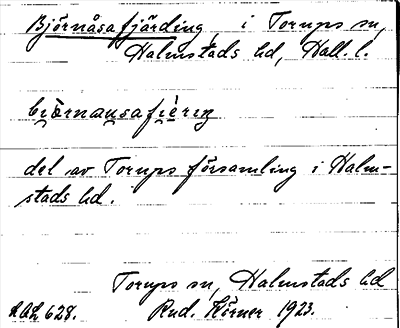 Björnåsafjärding, i Torups sn,
Halmstads hd, Hall. l.
biörnausafiering
del av Torups församling i Halm-
stads hd.
Torups sn, Halmstads hd
628. Rud. Körner 1923.